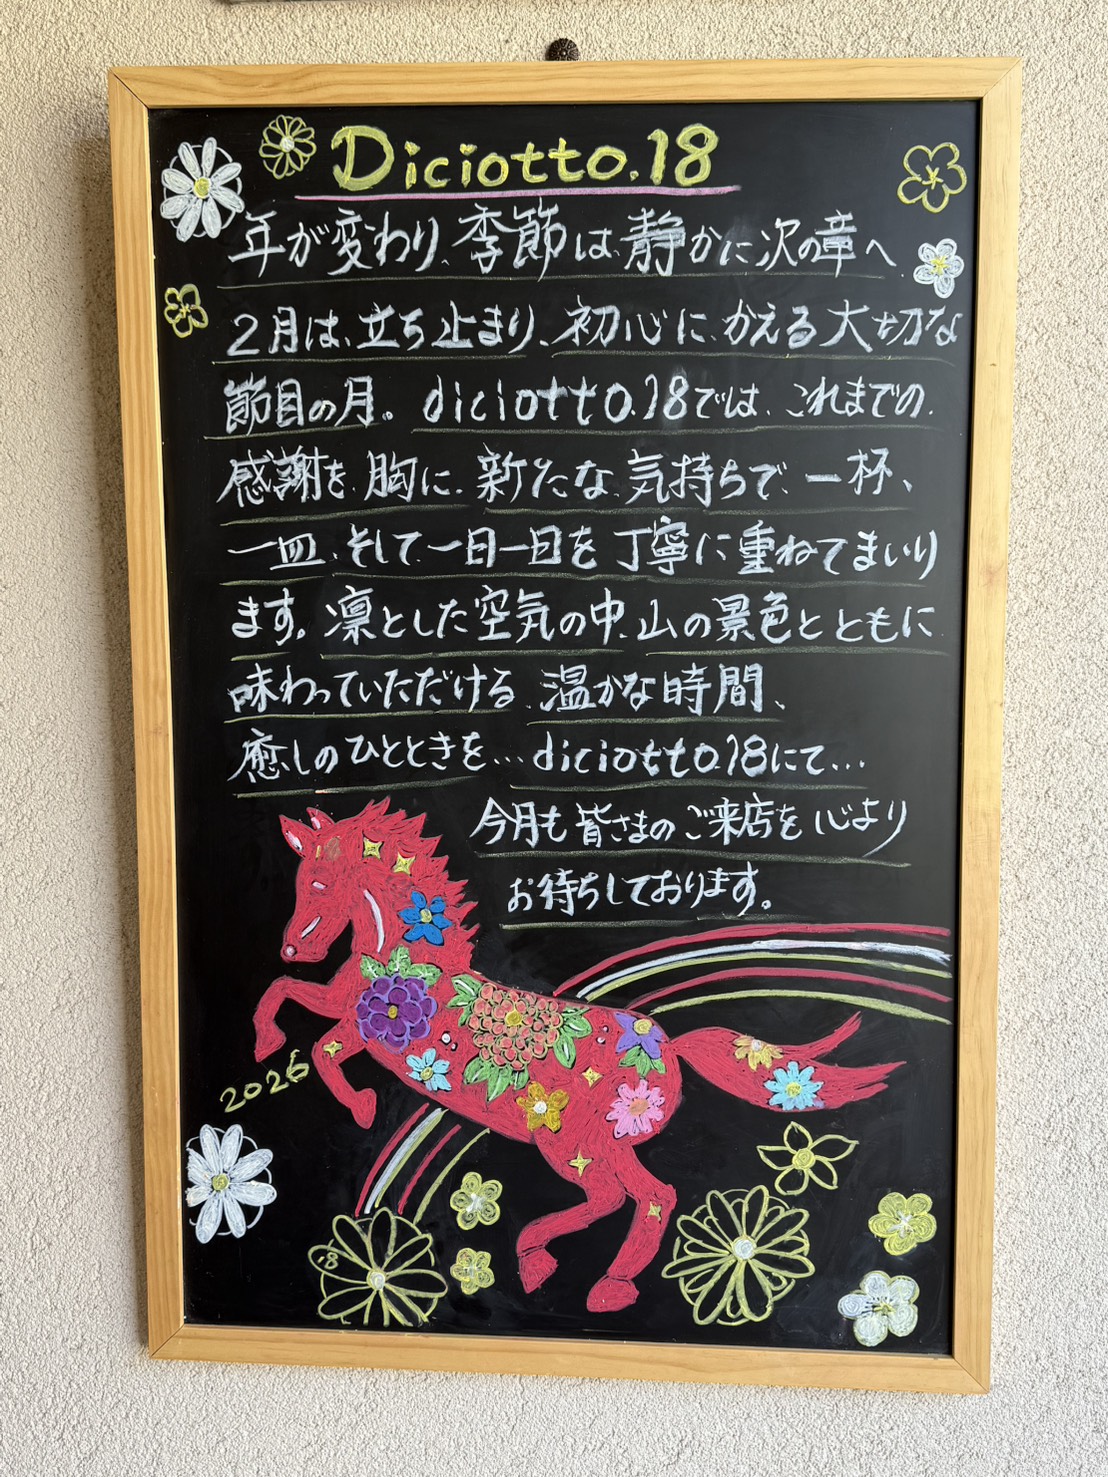 Diciotto.18
年が変わり、季節は、静かに次の章へ
2月は、立ち止まり、初心に、かえる大切な
節目の月。diciotto.18では、これまでの
感謝を、胸に、新たな、気持ちで、一杯、
一皿、そして一日一日を丁寧に重ねてまいり
ます。凛とした空気の中、山の景色とともに
味わっていただける、温かな時間、
癒しのひとときを…diciotto.18にて…
今月も皆さまのご来店を心より
お待ちしております。
2026
18